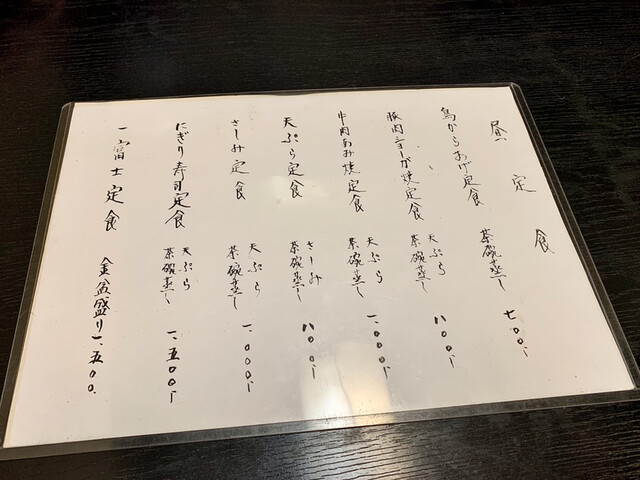 昼定食
鳥からあげ定食 茶碗蒸し 七〇〇、
豚肉ショーが焼定食 天ぷら 茶碗蒸し 八〇〇、
牛肉あみ焼定食 天ぷら 茶碗蒸し 一、〇〇〇、
天ぷら定食 さしみ 茶碗蒸し 八〇〇、
さしみ定食 天ぷら 茶碗蒸し 一、〇〇〇、
にぎり寿司定食 天ぷら 茶碗蒸し 一、五〇〇、
一富士定食 金盆盛り 一、五〇〇、